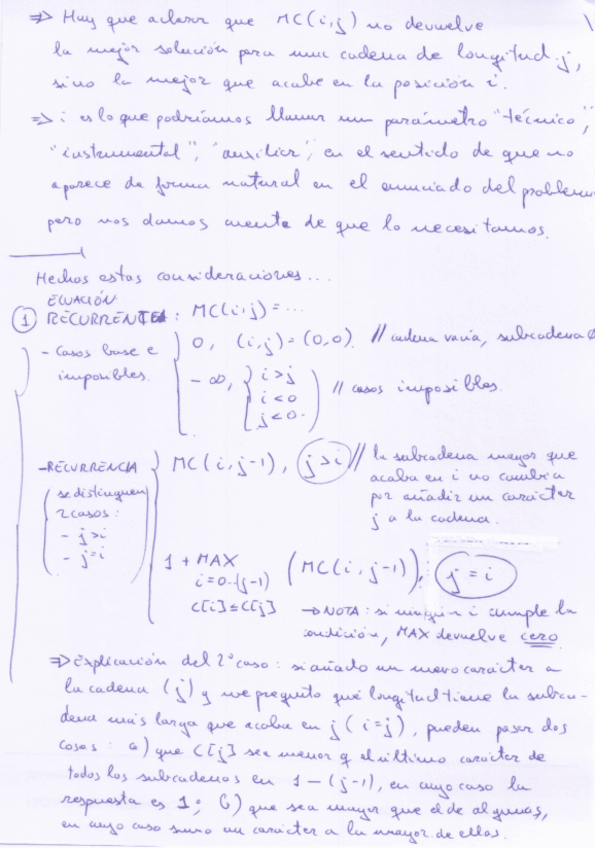 ⇒ Hay que aclarar que MC(i,j) no devuelve
la mejor solución para una cadena de longitud j,
sino la mejor que acabe en la posición i.
⇒ i es lo que podríamos llamar un parámetro "técnico",
"instrumental", "auxiliar", en el sentido de que no
aparece de forma natural en el enunciado del problema
pero nos damos cuenta de que lo necesitamos.
Hechas estas consideraciones...
ECUACIÓN
① RECURRENTE: MC(i,j)=...
- Casos base e imposibles.
0, (i,j)=(0,0) // cadena vacía, subcadena ∅
-∞, i>j
i<0
j<0
// casos imposibles.
-RECURRENCIA
se distinguen
2 casos:
- j>i
- j=i
MC(i,j-1), j>i // la subcadena mayor que
acaba en i no cambia
por añadir un carácter
j a la cadena.
1 + MAX (MC(i,j-1)), j=i
i=0-(j-1)
C[i]≤C[j]
→ NOTA: si ningún i cumple la
condición, MAX devuelve cero.
⇒ Explicación del 2º caso: si añado un nuevo carácter a
la cadena (j) y me pregunto qué longitud tiene la subca-
dena más larga que acaba en j (i=j), pueden pasar dos
cosas: a) que C[j] sea menor q el último carácter de
todas las subcadenas en 1-(j-1), en cuyo caso la
respuesta es 1; b) que sea mayor que el de algunas,
en cuyo caso sumo un carácter a la mayor de ellas.